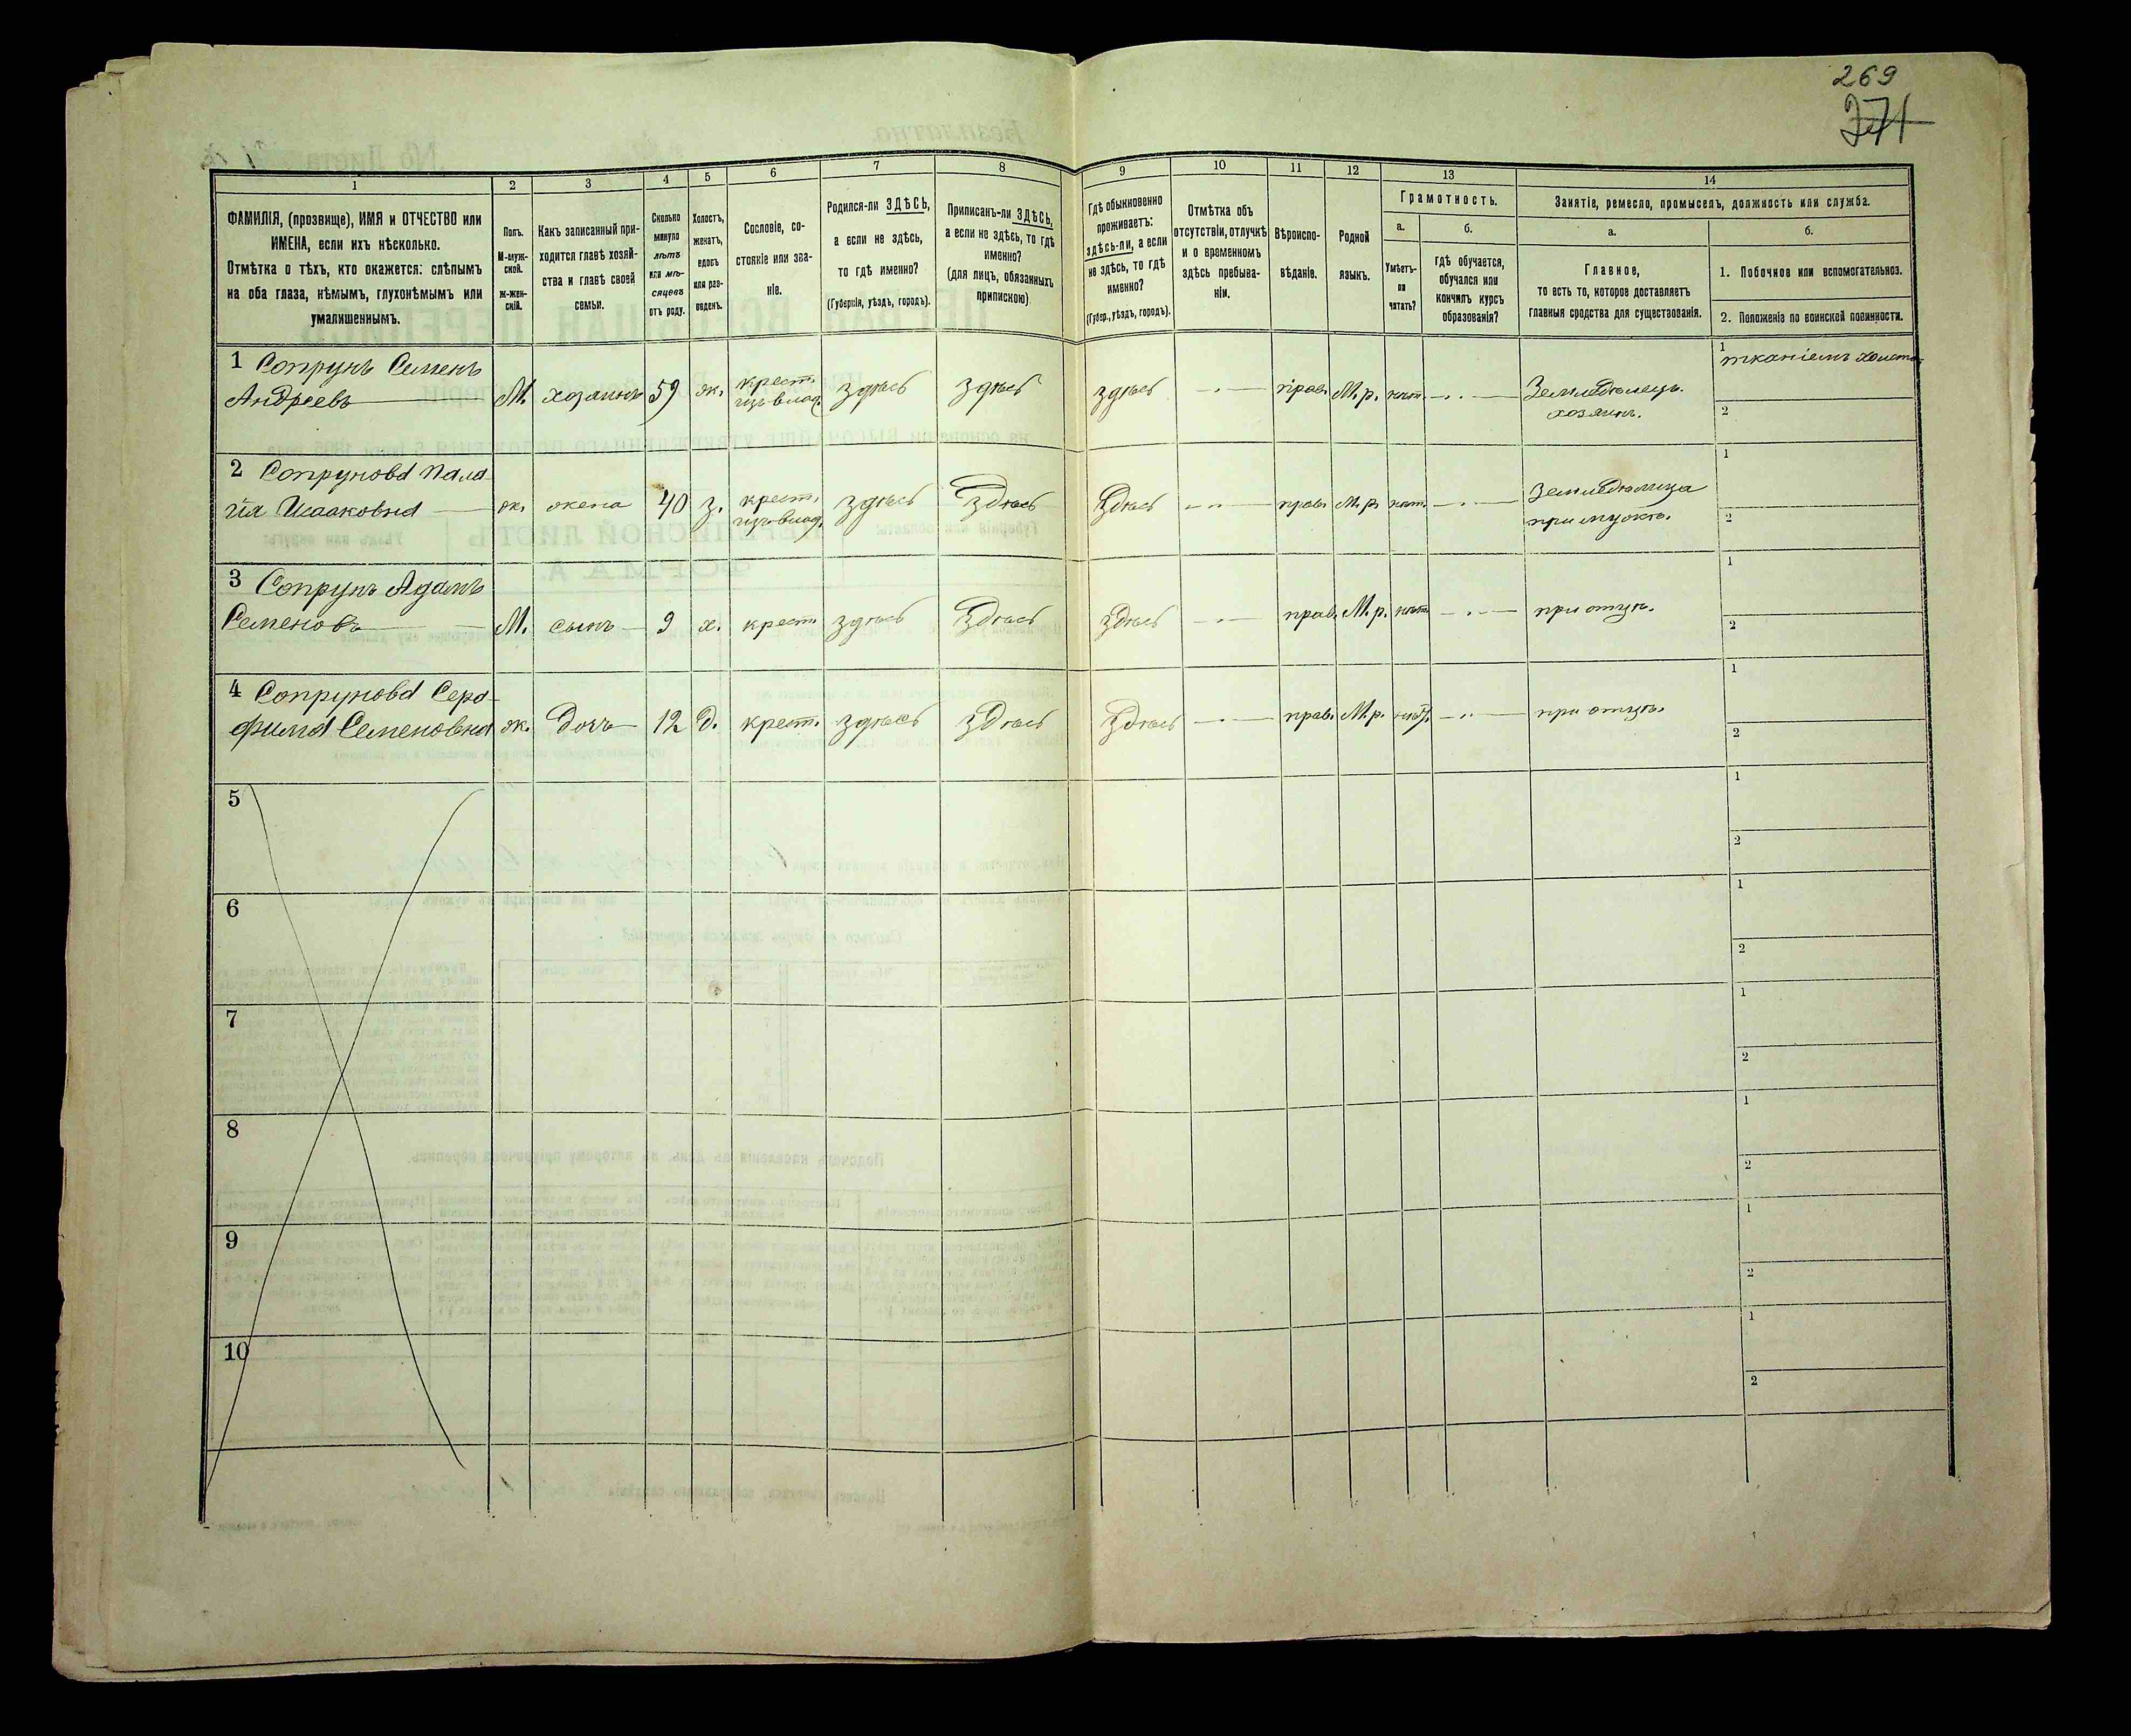 269
271
1
2
3
4
5
6
7
8
9
10
11
12
13
14
ФАМИЛІЯ, (прозвище), ИМЯ и ОТЧЕСТВО или
ИМЕНА, если ихъ нѣсколько.
Отмѣтка о тѣхъ, кто окажется: слѣпымъ
на оба глаза, нѣмымъ, глухонѣмымъ или
умалишеннымъ.
Полъ.
М-муж-
ской.
Ж-жен-
скій.
Какъ записанный при-
ходится главѣ хозяй-
ства и главѣ своей
семьи.
Сколько
минуло
лѣтъ
или мѣ-
сяцевъ
отъ роду.
Холостъ,
женатъ,
вдовъ
или раз-
веденъ.
Сословіе, со-
стояніе или зва-
ніе.
Родился-ли ЗДѢСЬ,
а если не здѣсь,
то гдѣ именно?
(Губернія, уѣздъ, городъ).
Приписанъ-ли ЗДѢСЬ,
а если не здѣсь, то гдѣ
именно?
(для лицъ, обязанныхъ
припискою)
Гдѣ обыкновенно
проживаетъ:
здѣсь-ли, а если
не здѣсь, то гдѣ
именно?
(Губер., уѣздъ, городъ).
Отмѣтка объ
отсутствіи, отлучкѣ
и о временномъ
здѣсь пребыва-
ніи.
Вѣроиспо-
вѣданіе.
Родной
языкъ.
Грамотность.
а.
Умѣетъ-
ли
читать?
б.
гдѣ обучается,
обучался или
кончилъ курсъ
образованія?
Занятіе, ремесло, промыселъ, должность или служба.
а.
Главное,
то есть то, которое доставляетъ
главныя средства для существованія.
б.
1. Побочное или вспомогательное.
2. Положеніе по воинской повинности.
1 Сопрунъ Семенъ
Андреевъ М. хозяинъ 59 ж. крест. из-влад. здѣсь здѣсь здѣсь прав. М.р. нѣт. Земледѣлецъ. хозяинъ.
1 тканіемъ холста
2
2 Сопрунова Пала-
гія Исааковна ж. жена 40 з. крест. из-влад. здѣсь здѣсь здѣсь прав. М.р. нѣт. Земледѣлица при мужѣ.
1
2
3 Сопрунъ Адамъ
Семеновъ М. сынъ 9 х. крест. здѣсь здѣсь здѣсь прав. М.р. нѣт. при отцѣ.
1
2
4 Сопрунова Сера-
фима Семеновна ж. дочь 12 д. крест. здѣсь здѣсь здѣсь прав. М.р. нѣт. при отцѣ.
1
2
5
1
2
6
1
2
7
1
2
8
1
2
9
1
2
10
1
2